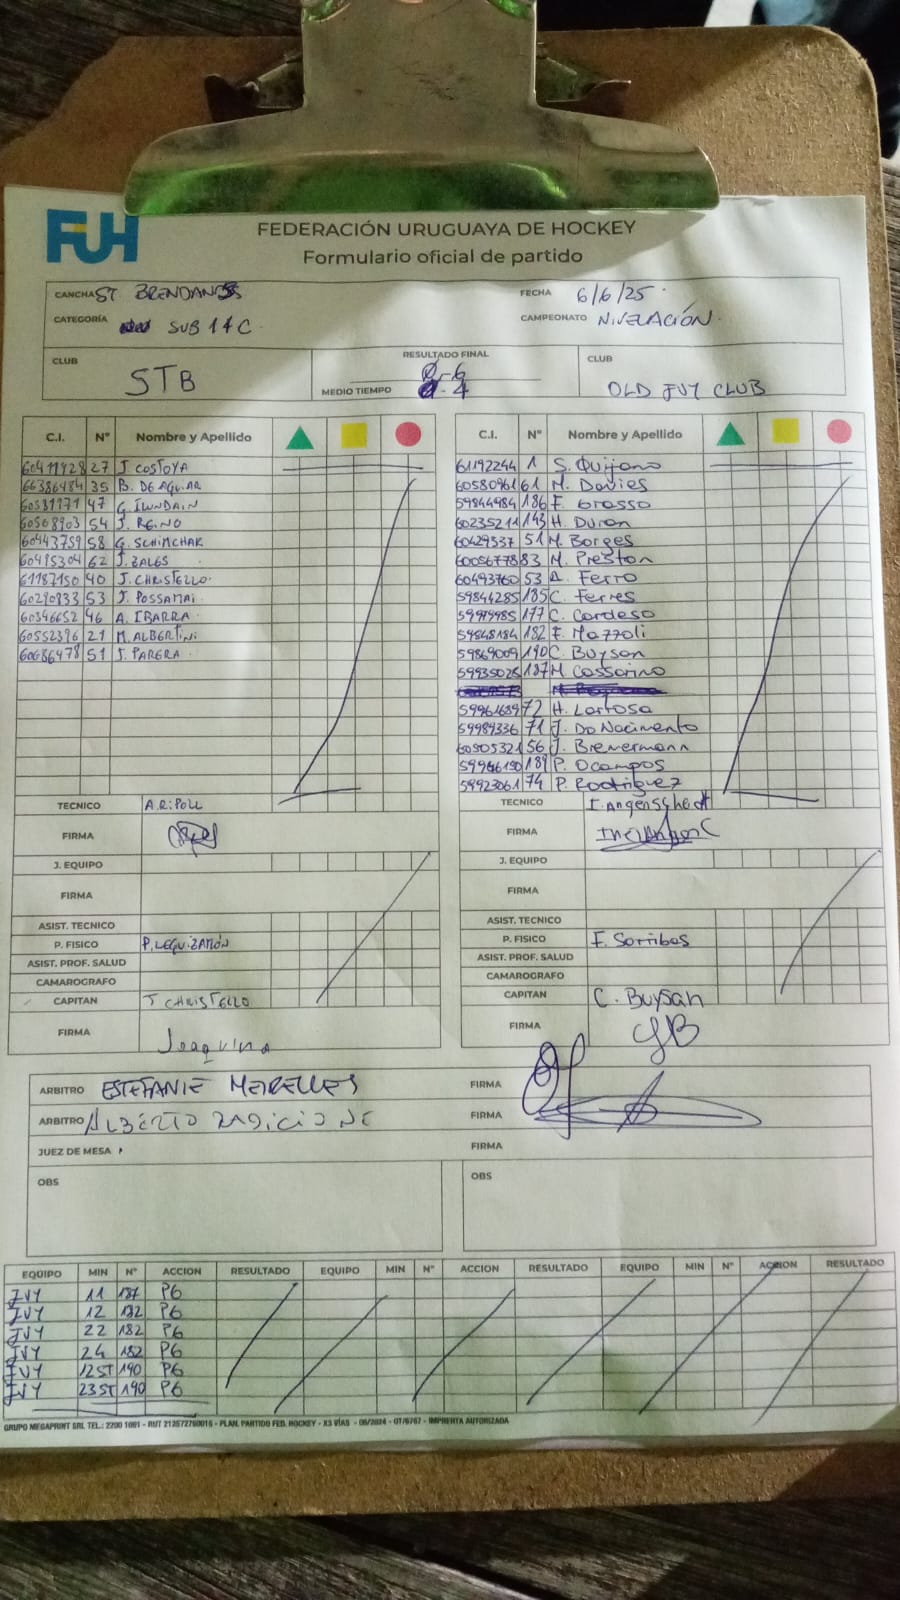 FUH
FEDERACIÓN URUGUAYA DE HOCKEY
Formulario oficial de partido
CANCHA ST BRENDAN'S FECHA 6/6/25
CATEGORÍA SUB 14 C. CAMPEONATO NIVELACIÓN
CLUB RESULTADO FINAL CLUB
STB 0-6 OLD IVY CLUB
MEDIO TIEMPO 0-4
C.I. Nº Nombre y Apellido C.I. Nº Nombre y Apellido
27 J. COSTOYA 61192244 1 S. Quijano
66386484 35 B. DE AGUIAR 60580961 61 M. Davies
47 G. ILUNDAIN 59844984 186 F. Grasso
60508903 54 J. REINO 60235211 143 H. Duran
60443759 58 G. SCHIMCHAR 60429537 51 M. Borges
60495304 62 J. ZALES 60056778 83 M. Preston
61187150 40 J. CHRISTELLO 60493760 53 A. Ferro
60290833 53 J. POSSAMAI 59844285 185 C. Ferres
60346652 46 A. IBARRA 59979985 177 C. Cardeso
60552396 21 M. ALBERTINI 59548184 182 F. Mazzoli
60686478 51 J. PARERA 59869009 190 C. Buysan
59935025 187 M. Cassarino
72 H. Lartosa
59989336 71 J. Do Nacimento
60505321 56 J. Bremermann
189 P. Ocampos
59923061 74 P. Rodriguez
TECNICO A. RIPOLL TECNICO
FIRMA FIRMA
J. EQUIPO J. EQUIPO
FIRMA FIRMA
ASIST. TECNICO ASIST. TECNICO
P. FISICO P. LEGUIZAMÓN P. FISICO F. Sorribas
ASIST. PROF. SALUD ASIST. PROF. SALUD
CAMAROGRAFO CAMAROGRAFO
CAPITAN J CHRISTELLO CAPITAN C. Buysan
FIRMA Joaquina FIRMA CB
ARBITRO ESTEFANIE MEIRELLES FIRMA
ARBITRO ALBERTO FIRMA
JUEZ DE MESA FIRMA
OBS OBS
EQUIPO MIN Nº ACCION RESULTADO EQUIPO MIN Nº ACCION RESULTADO EQUIPO MIN Nº ACCION RESULTADO
IVY 11 187 PG
IVY 12 182 PG
IVY 22 182 PG
IVY 24 182 PG
IVY 12ST 190 PG
IVY 23ST 190 PG
GRUPO MEGAPRINT SRL TEL.: 2200 1081 - RUT 212572760016 - PLAN. PARTIDO FED. HOCKEY - X3 VÍAS - 08/2024 - 01/8767 - IMPRENTA AUTORIZADA